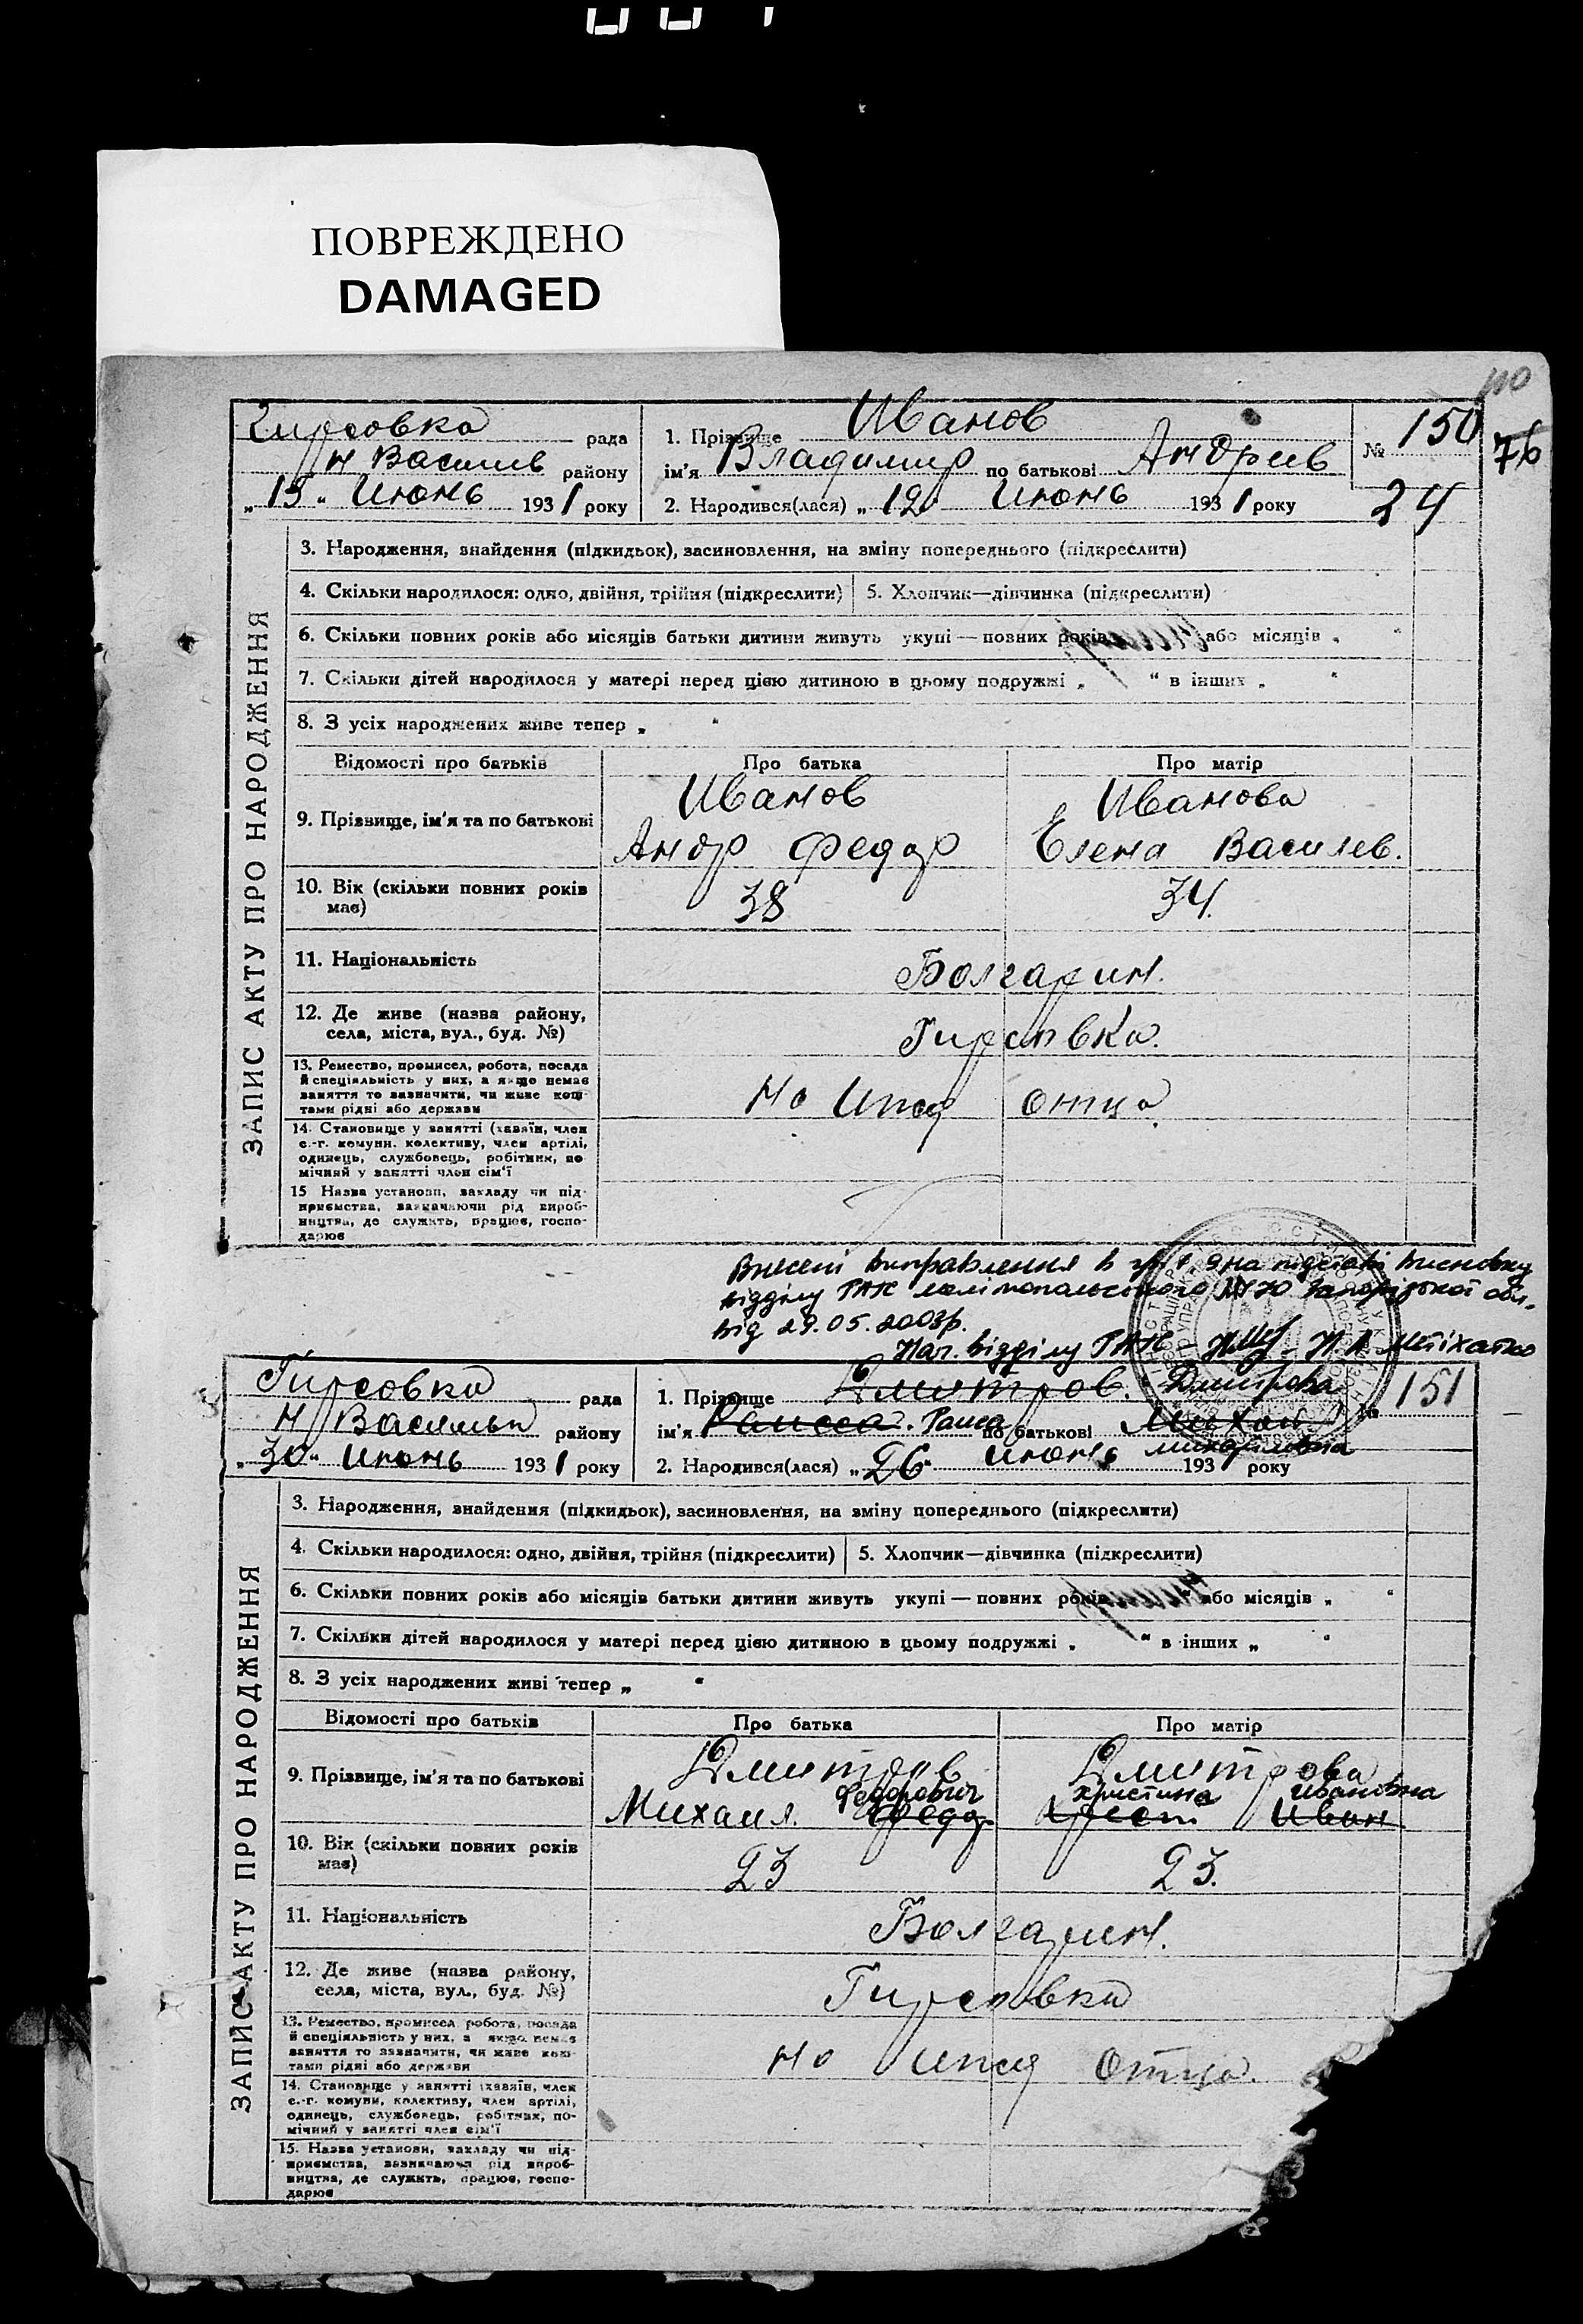 ПОВРЕЖДЕНО
DAMAGED
110
76
Гирсовка рада
Н Василів району
„15“ Июнь 1931 року
1. Прізвище Иванов
ім'я Владимир по батькові Андрив
2. Народився(лася) „12“ Июнь 1931 року
№ 150
24
ЗАПИС АКТУ ПРО НАРОДЖЕННЯ
3. Народження, знайдення (підкидьок), засиновлення, на зміну попереднього (підкреслити)
4. Скільки народилося: одно, двійня, трійня (підкреслити) 5. Хлопчик—дівчинка (підкреслити)
6. Скільки повних років або місяців батьки дитини живуть укупі — повних років або місяців „ “
7. Скільки дітей народилося у матері перед цією дитиною в цьому подружжі „ “ в інших „ “
8. З усіх народжених живе тепер „ “
Відомості про батьків Про батька Про матір
9. Прізвище, ім'я та по батькові
Иванов Иванова
Андр Федор Елена Василев.
10. Вік (скільки повних років
має)
38 34.
11. Національність Болгарин.
12. Де живе (назва району,
села, міста, вул., буд. №)
Гирсовка.
13. Ремество, промисел, робота, посада
й спеціяльність у них, а якщо немає
заняття то зазначити, чи живе кош-
тами рідні або держави
отца
14. Становище у занятті (хазяїн, член
с.-г. комуни, колективу, член артілі,
одинець, службовець, робітник, по-
мічний у занятті член сім'ї
15 Назва установи, закладу чи під-
приємства, зазначаючи рід вироб-
ництва, де служить, працює, госпо-
дарює
Внесені виправлення в гр 1, 9 на підставі висновку
відділу РАЦС Мелітопольського МУЮ Запорізької обл.
від 29.05.2003р.
Нач. відділу РАЦС
Гирсовка рада
Н Васильв району
„30“ Июнь 1931 року
1. Прізвище Дмитров. Дмитрова
ім'я Раисса. Раиса по батькові Михаил
Михайловна
2. Народився(лася) „26“ Июнь 1931 року
№ 151
ЗАПИС АКТУ ПРО НАРОДЖЕННЯ
3. Народження, знайдення (підкидьок), засиновлення, на зміну попереднього (підкреслити)
4. Скільки народилося: одно, двійня, трійня (підкреслити) 5. Хлопчик—дівчинка (підкреслити)
6. Скільки повних років або місяців батьки дитини живуть укупі — повних років або місяців „ “
7. Скільки дітей народилося у матері перед цією дитиною в цьому подружжі „ “ в інших „ “
8. З усіх народжених живі тепер „ “
Відомості про батьків Про батька Про матір
9. Прізвище, ім'я та по батькові
Дмитров Дмитрова
Федорович Христина Ивановна
Михаил. Федор. Крест. Иван
10. Вік (скільки повних років
має)
23 23.
11. Національність Болгарин.
12. Де живе (назва району,
села, міста, вул., буд. №)
Гирсовка
13. Ремество, промисел, робота, посада
й спеціяльність у них, а якщо немає
заняття то зазначити, чи живе кош-
тами рідні або держави
отца.
14. Становище у занятті (хазяїн, член
с.-г. комуни, колективу, член артілі,
одинець, службовець, робітник, по-
мічний у занятті член сім'ї
15. Назва установи, закладу чи під-
приємства, зазначаючи рід вироб-
ництва, де служить, працює, госпо-
дарює